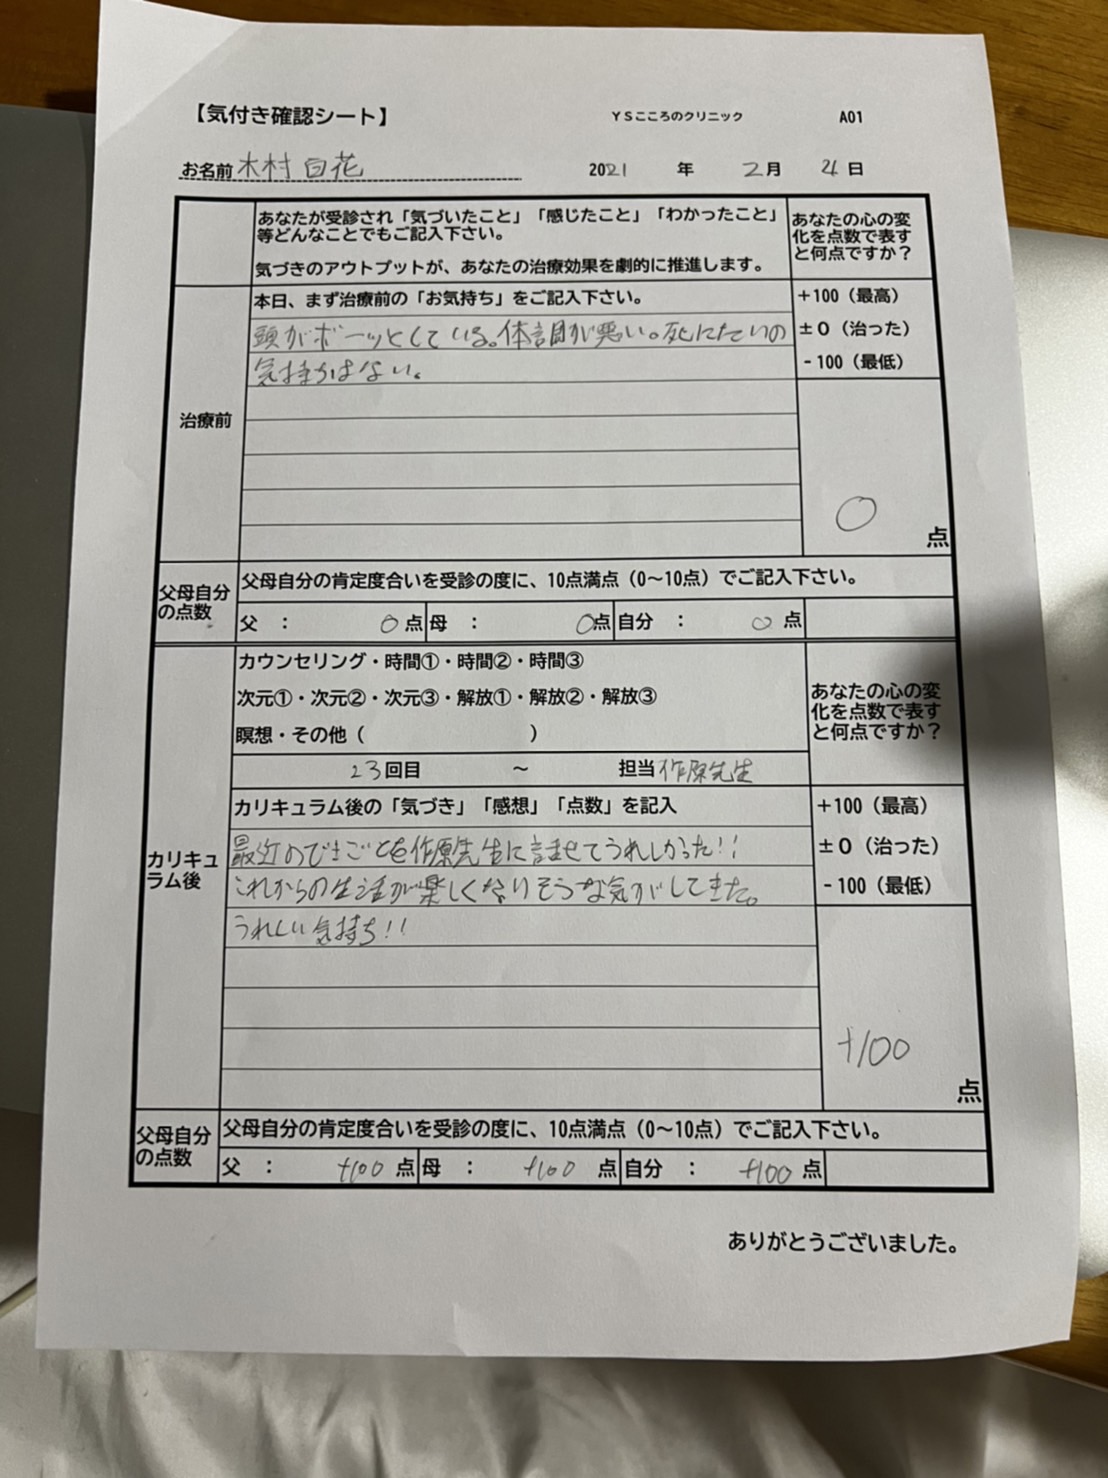 【気付き確認シート】 YSこころのクリニック A01
お名前 木村 百花 2021 年 2月 4日
あなたが受診され「気づいたこと」「感じたこと」「わかったこと」
等どんなことでもご記入下さい。
気づきのアウトプットが、あなたの治療効果を劇的に推進します。
あなたの心の変
化を点数で表す
と何点ですか?
治療前
本日、まず治療前の「お気持ち」をご記入下さい。
頭がボーッとしている。体調が悪い。死にたいの
気持ちはない。
+100(最高)
±0(治った)
-100(最低)
0 点
父母自分
の点数
父母自分の肯定度合いを受診の度に、10点満点(0〜10点)でご記入下さい。
父 : 0 点 母 : 0点 自分 : 0 点
カウンセリング・時間①・時間②・時間③
次元①・次元②・次元③・解放①・解放②・解放③
瞑想・その他( )
23回目 〜 担当 作原先生
あなたの心の変
化を点数で表す
と何点ですか?
カリキュ
ラム後
カリキュラム後の「気づき」「感想」「点数」を記入
最近のできごとを作原先生に話せてうれしかった!!
これからの生活が楽しくなりそうな気がしてきた。
うれしい気持ち!!
+100(最高)
±0(治った)
-100(最低)
+100 点
父母自分
の点数
父母自分の肯定度合いを受診の度に、10点満点(0〜10点)でご記入下さい。
父 : +100 点 母 : +100 点 自分 : +100 点
ありがとうございました。